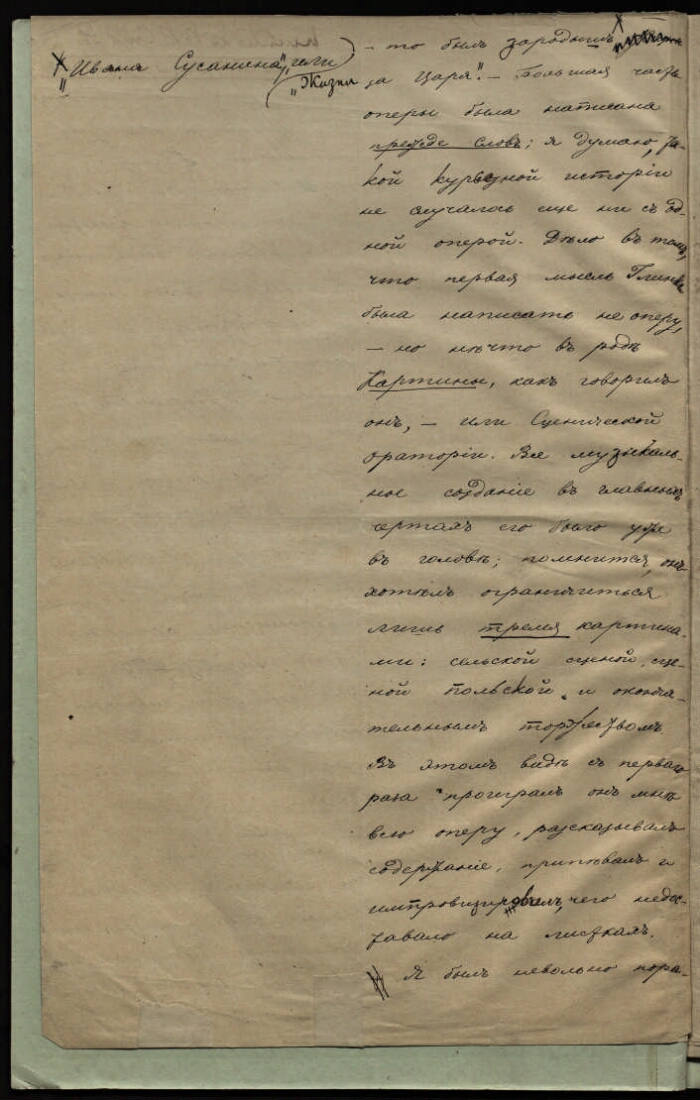 — то былъ зародышъ
"Ивана Сусанина", или
("Жизни за Царя". — Большая часть
оперы была написана
прежде словъ; я думаю, та-
кой курьозной исторіи
не случалось еще ни съ од-
ной оперой. Дѣло въ томъ,
что первая мысль Глинки
была написать не оперу,
— но нѣчто въ родѣ
Картины, какъ говорилъ
онъ, — или Сценической
ораторіи. Все музыкаль-
ное созданіе въ главныхъ
чертахъ его было уже
въ головѣ; помнится, онъ
хотѣлъ ограничиться
лишь тремя картина-
ми: сельской сценой, сце-
ной польской и оконча-
тельнымъ торжествомъ.
Въ этомъ видѣ съ перваго
раза проигралъ онъ мнѣ
всю оперу, разсказывалъ
содержаніе, припѣвалъ и
импровизировалъ, чего недос-
тавало на листкахъ.
Я былъ невольно пора-